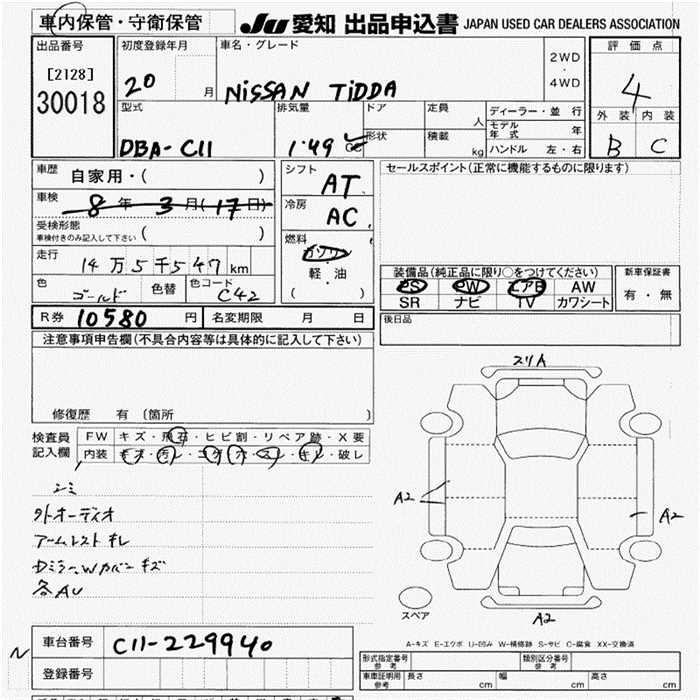 車内保管・守衛保管
JU 愛知 出品申込書 JAPAN USED CAR DEALERS ASSOCIATION
出品番号
[2128]
30018
初度登録年月
20 月
車名・グレード
NISSAN TiDDA
2WD
・
4WD
評価点
4
外装 内装
B C
型式
DBA-C11
排気量
1.49 cc
ドア
形状
定員 人
積載 kg
ディーラー・並行
モデル年式 年
ハンドル 左・右
車歴 自家用・( )
車検 8年 3月(17日)
受検形態
車検付きのみ記入して下さい ( )
走行 14万5千547km
色 ゴールド 色替 色コード C42
シフト AT
冷房 AC
燃料 ガソリン
軽・油
( )
セールスポイント(正常に機能するものに限ります)
装備品(純正品に限り○をつけてください)
PS PW エアB AW
SR ナビ TV カワシート
新車保証書
有・無
R券 10580円 名変期限 月 日
後日品
注意事項申告欄(不具合内容等は具体的に記入して下さい)
修復歴 有 〔箇所 〕
検査員記入欄
FW キズ・飛石・ヒビ割・リペア跡・X要
内装 キズ・汚レ・コゲ・穴・スレ・キレ・破レ
シミ
外オーディオ
アームレスト キレ
各AU
スリA
A2
A2
A2
スペア
A-キズ E-エクボ U-凹み W-補修跡 S-サビ C-腐食 XX-交換済
車台番号 C11-229940
登録番号
型式指定番号 参考
類別区分番号 参考
車庫証明用 参考 長さ cm 幅 cm 高さ cm